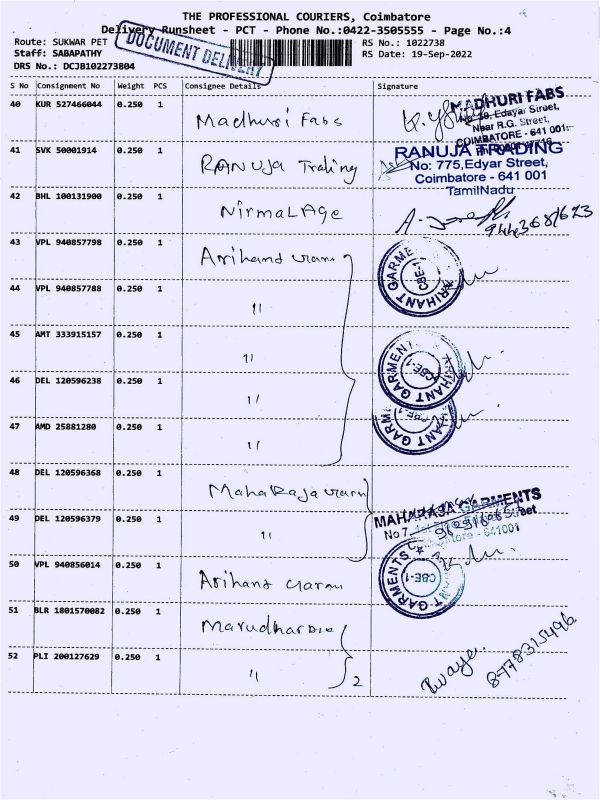 THE PROFESSIONAL COURIERS, Coimbatore
Delivery Runsheet - PCT - Phone No.:0422-3505555 - Page No.:4
Route: SUKWAR PET
RS No.: 1022738
Staff: SABAPATHY
RS Date: 19-Sep-2022
DRS No.: DCJB102273804
DOCUMENT DELIVERY
S No Consignment No Weight PCS Consignee Details Signature
40 KUR 527466044 0.250 1 Madhuri Fabs
MADHURI FABS
Edayar Street,
Near R.G. Street,
COIMBATORE - 641 001.
41 SVK 50001914 0.250 1 RANUJA Trading
RANUJA TRADING
No: 775,Edyar Street,
Coimbatore - 641 001
TamilNadu
42 BHL 100131900 0.250 1 NirmaL Age
43 VPL 940857798 0.250 1 Arihant Garm
ARIHANT GARME
CBE-1
44 VPL 940857788 0.250 1 "
45 AMT 333915157 0.250 1 "
ARIHANT GARMENT
CBE-1
46 DEL 120596238 0.250 1 "
47 AMD 25881280 0.250 1 "
HANT GARM
CBE-1
48 DEL 120596368 0.250 1 MahaRaja Garm
MAHARAJA GARMENTS
No 7,
641001
49 DEL 120596379 0.250 1 "
50 VPL 940856014 0.250 1 Arihant Garm
ARIHANT GARMENTS
CBE-1
51 BLR 1801570082 0.250 1 Marudhar
52 PLI 200127629 0.250 1 " 2
8778315496